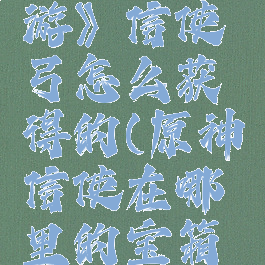 游》信使
弓怎么获
得的(原神
信使在哪
里的宝箱